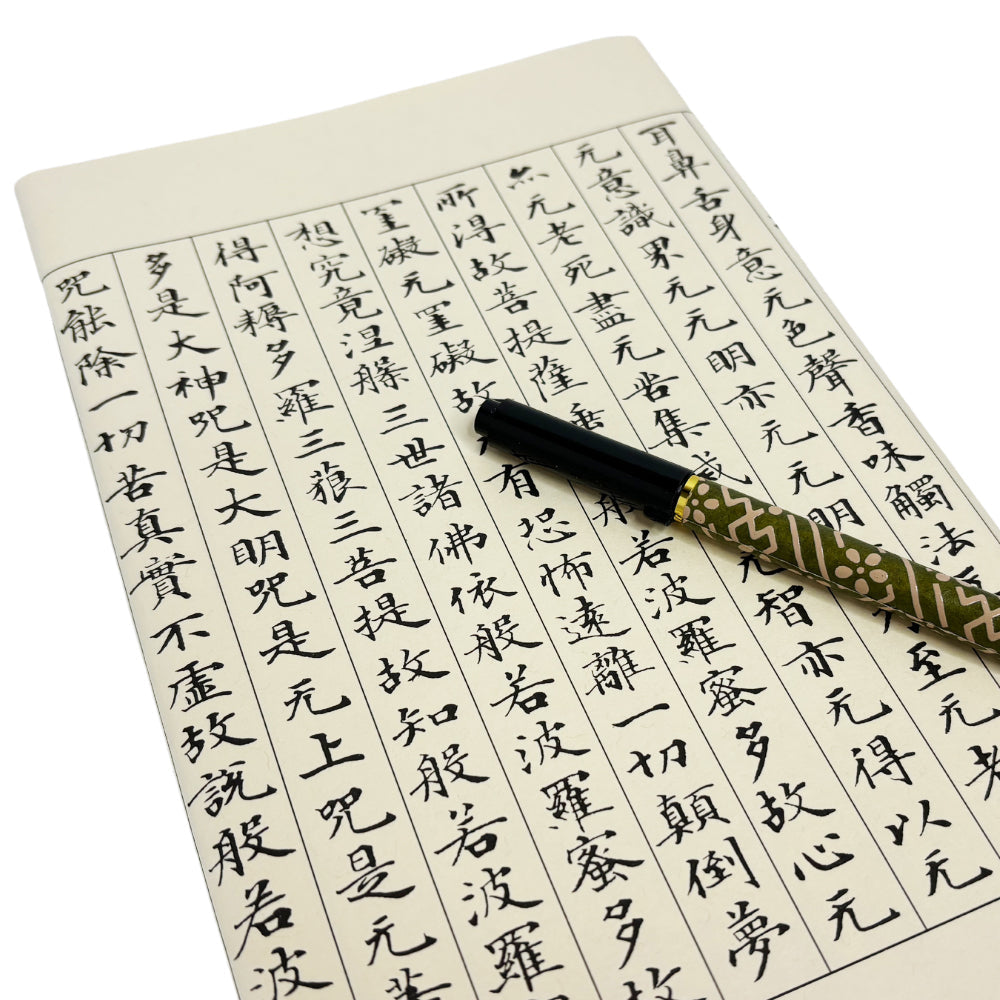 耳鼻舌身意无色聲香味觸法
无意識界无无明亦无无明至无老
亦无老死盡无苦集滅无智亦无得以无
所得故菩提薩埵般若波羅蜜多故心无
罣礙无罣礙故有恐怖遠離一切顛倒夢
想究竟涅槃三世諸佛依般若波羅蜜多故
得阿耨多羅三藐三菩提故知般若波羅
多是大神咒是大明咒是无上咒是无等
咒能除一切苦真實不虛故說般若波